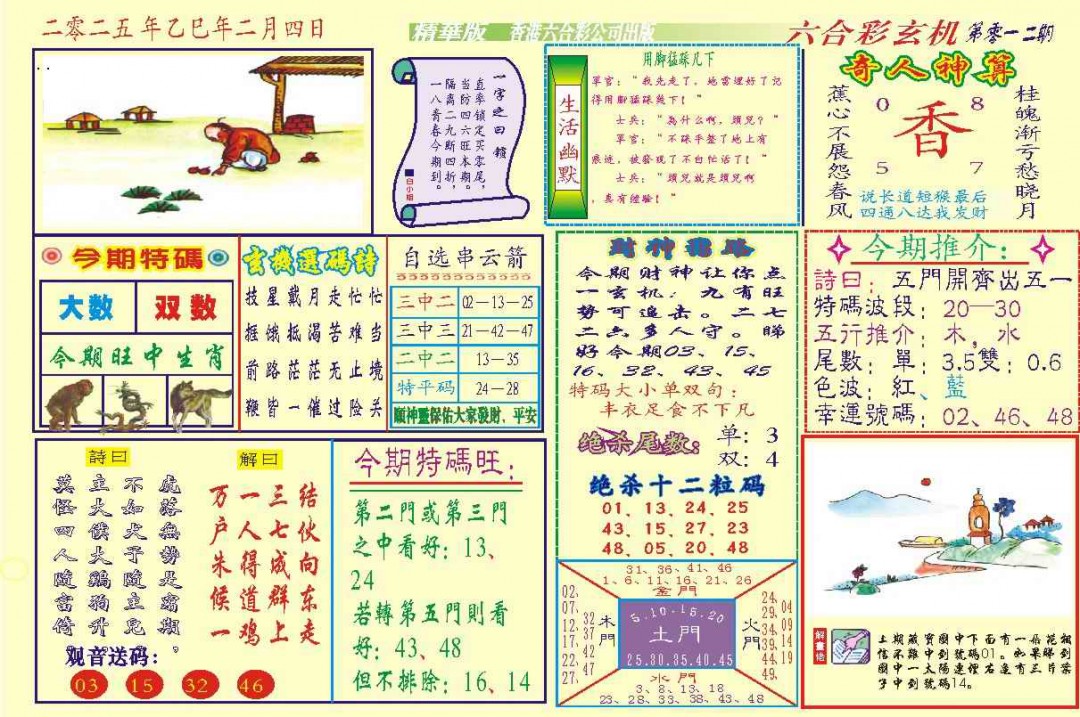 二零二五年乙巳年二月四日
精華版 香港六合彩公司出版
六合彩玄机 第零一二期
一字之曰：鎖
直率锁定买零尾，
当防四六旺本期。
隔离二九断四折，
一八青春今期到。
白小姐
生活幽默
用脚猛踩几下
軍官：“我先走了，地雷埋好了记
得用腳猛踩幾下！”
士兵：“為什么啊，頭兒？”
軍官：“不踩平整了地上有
痕迹，被發現了不白忙活了！”
士兵：“頭兒就是頭兒啊
，真有經驗！”
奇人神算
蕉心不展怨春风
桂魄渐亏愁晓月
0 8
香
5 7
说长道短猴最后
四通八达我发财
今期特碼
大数 双数
今期旺中生肖
玄機選碼詩
披星戴月走忙忙
捱饿抵渴苦难当
前路茫茫无止境
鞭皆一催过险关
自选串云箭
三中二 02—13—25
三中三 21—42—47
二中二 13—35
特平码 24—28
順神靈保佑大家發財、平安
財神指路
今期财神让你点
一玄机：九有旺
势可追击。二七
二六多人守。睇
好今期03、15、
16、32、43、45
特码大小单双句：
丰衣足食不下凡
绝杀尾数：
单：3
双：4
绝杀十二粒码
01、13、24、25
43、15、27、23
48、05、20、48
今期推介：
詩曰：五門開齊出五一
特碼波段：20—30
五行推介：木，水
尾數：單：3.5雙：0.6
色波：紅、藍
幸運號碼：02、46、48
詩曰
虎落無勢是霜期，
不如犬予隨主兒
主大僕大鷄狗升
莫怪四人隨富倚。
解曰
结伙向东走
三七成群上
一人得道鸡
万户朱候一
观音送码：
03 15 32 46
今期特碼旺：
第二門或第三門
之中看好：13、
24
若轉第五門則看
好：43、48
但不排除：16、14
31、36、41、46
1、6、11、16、21、26
金門
02、07、12、17、22、27、
32、37、42、47
木門
5.10.15.20
土門
25.30.35.40.45
火門
24、29、34、39、44、49、
04、09、14、19
水門
3、8、13、18
23、28、33、38、43、48
解畫语
上期藏寳圖中下面有一朵花相
信不難中到號碼01。如果睇到
圖中一太陽連樘右邊有三片葉
子中到號碼14。